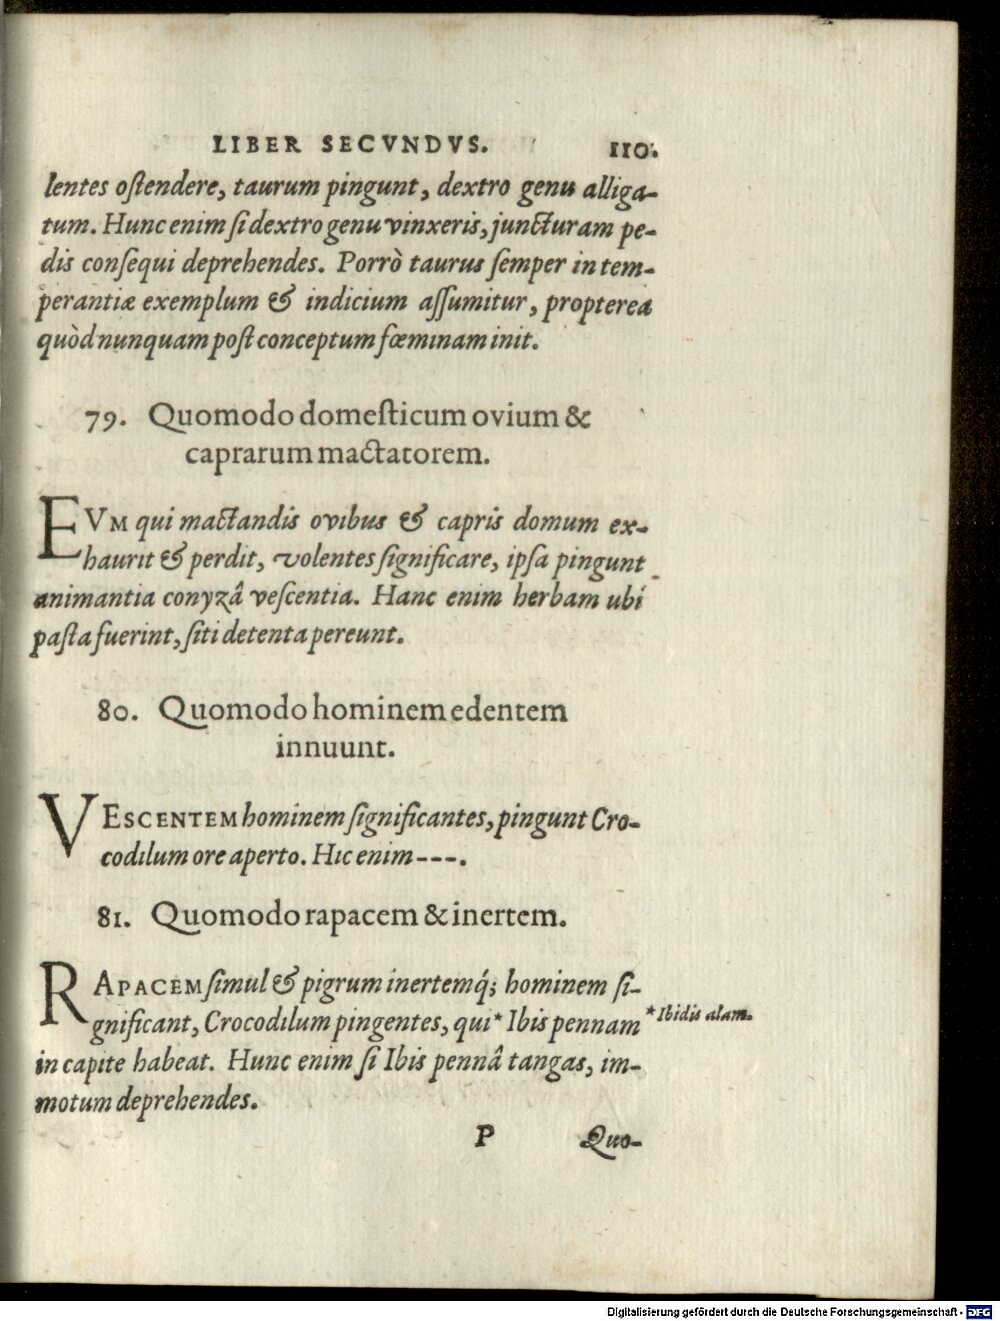 LIBER SECVNDVS. 110.
lentes ostendere, taurum pingunt, dextro genu alliga-
tum. Hunc enim si dextro genu vinxeris, juncturam pe-
dis consequi deprehendes. Porrò taurus semper in tem-
perantiæ exemplum & indicium assumitur, propterea
quòd nunquam post conceptum fœminam init.
79. Quomodo domesticum ovium &
caprarum mactatorem.
EVM qui mactandis ovibus & capris domum ex-
haurit & perdit, volentes significare, ipsa pingunt
animantia conyzâ vescentia. Hanc enim herbam ubi
pasta fuerint, siti detenta pereunt.
80. Quomodo hominem edentem
innuunt.
VESCENTEM hominem significantes, pingunt Cro-
codilum ore aperto. Hic enim ---.
81. Quomodo rapacem & inertem.
RAPACEM simul & pigrum inertemq́; hominem si-
gnificant, Crocodilum pingentes, qui * Ibis pennam
* Ibidis alam.
in capite habeat. Hunc enim si Ibis pennâ tangas, im-
motum deprehendes.
P Quo-
Digitalisierung gefördert durch die Deutsche Forschungsgemeinschaft - DFG